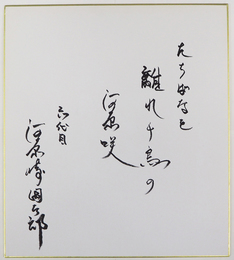 たちばなを
離れ千鳥の
河原咲
六代目
河原崎國太郎